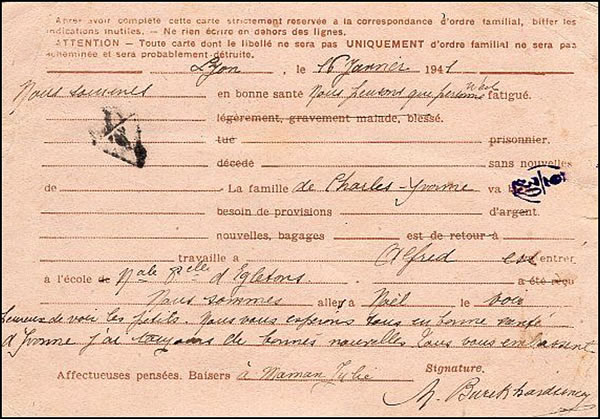 Après avoir complété cette carte strictement réservée à la correspondance d'ordre familial, biffer les
indications inutiles. — Ne rien écrire en dehors des lignes.
ATTENTION — Toute carte dont le libellé ne sera pas UNIQUEMENT d'ordre familial ne sera pas
acheminée et sera probablement détruite.
Lyon, le 16 Janvier 1941
Nous sommes en bonne santé Nous pensons que personne n'est fatigué.
légèrement, gravement malade, blessé.
tué prisonnier.
décédé sans nouvelles
de La famille de Charles-Yvonne va b
besoin de provisions d'argent.
nouvelles, bagages est de retour à
travaille à Alfred est entrer
à l'école de Nale Pelle d'Egletons a été reçu
Nous sommes aller à Noël le voir
heureux de voir les petits. Nous vous espérons tous en bonne santé
d'Yvonne j'ai toujours de bonnes nouvelles tous vous embrassent
Affectueuses pensées. Baisers à Maman Julie Signature.